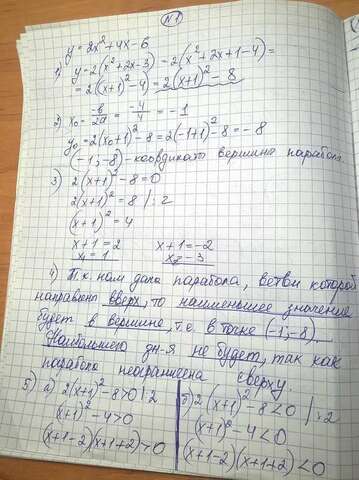 №1
y = 2x² + 4x - 6
1) y = 2(x² + 2x - 3) - 2(x² + 2x + 1 - 4) =
= 2((x+1)² - 4) = 2(x+1)² - 8
2) x₀ = -b/2a = -4/4 = -1
y₀ = 2(x₀+1)² - 8 = 2(-1+1)² - 8 = -8
(-1; -8) - координаты вершина парабол
3) 2(x+1)² - 8 = 0
2(x+1)² = 8 | : 2
(x+1)² = 4
x+1 = 2 x+1 = -2
x₁ = 1 x₂ = -3
4) Т.к нам дана парабола, ветви которой
направлены вверх, то наименьшее значение
будет в вершине, т.е. в точке (-1; -8).
Наибольшего зн-я не будет, так как
парабола неограничена сверху.
5) а) 2(x+1)² - 8 > 0 | : 2
(x+1)² - 4 > 0
(x+1-2)(x+1+2) > 0
б) 2(x+1)² - 8 < 0 | : 2
(x+1)² - 4 < 0
(x+1-2)(x+1+2) < 0